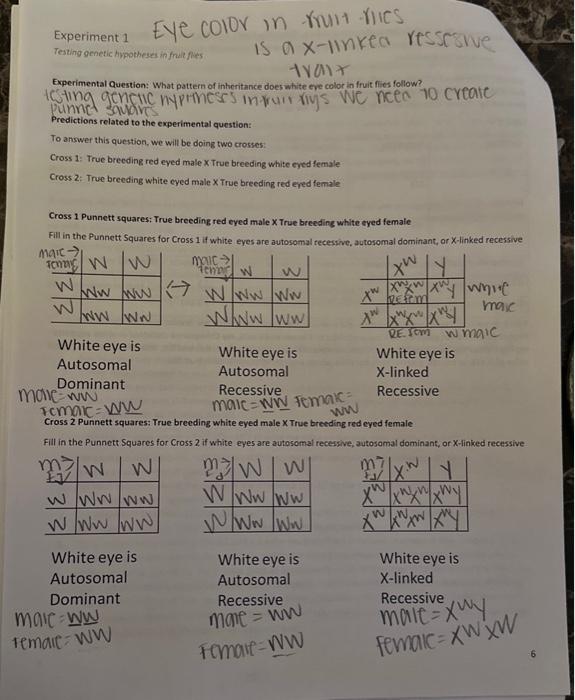 Eye color in fruit flies
Experiment 1
is a x-linked ressesive
Testing genetic hypotheses in fruit flies
trait
Experimental Question: What pattern of inheritance does white eye color in fruit flies follow?
testing genetic in we need to create
punnet squares
Predictions related to the experimental question:
To answer this question, we will be doing two crosses:
Cross 1: True breeding red eyed male X True breeding white eyed female
Cross 2: True breeding white eyed male X True breeding red eyed female
Cross 1 Punnett squares: True breeding red eyed male X True breeding white eyed female
Fill in the Punnett Squares for Cross 1 if white eyes are autosomal recessive, autosomal dominant, or X-linked recessive
male → male →
female w w female w w Xw Y
w ww ww ↔ w ww ww Xw XwXw XwY white
RE fem male
w ww ww w ww ww Xw XwXw XwY
RE fem w male
White eye is White eye is White eye is
Autosomal Autosomal X-linked
Dominant Recessive Recessive
male = ww male = ww female =
female = ww ww
Cross 2 Punnett squares: True breeding white eyed male X True breeding red eyed female
Fill in the Punnett Squares for Cross 2 if white eyes are autosomal recessive, autosomal dominant, or X-linked recessive
m→ w w m→ w w m→ Xw Y
w ww ww w ww ww Xw XwXw XwY
w ww ww w ww ww Xw XwXw XwY
White eye is White eye is White eye is
Autosomal Autosomal X-linked
Dominant Recessive Recessive
male = ww male = ww male = XwY
female = ww female = ww female = XwXw
6